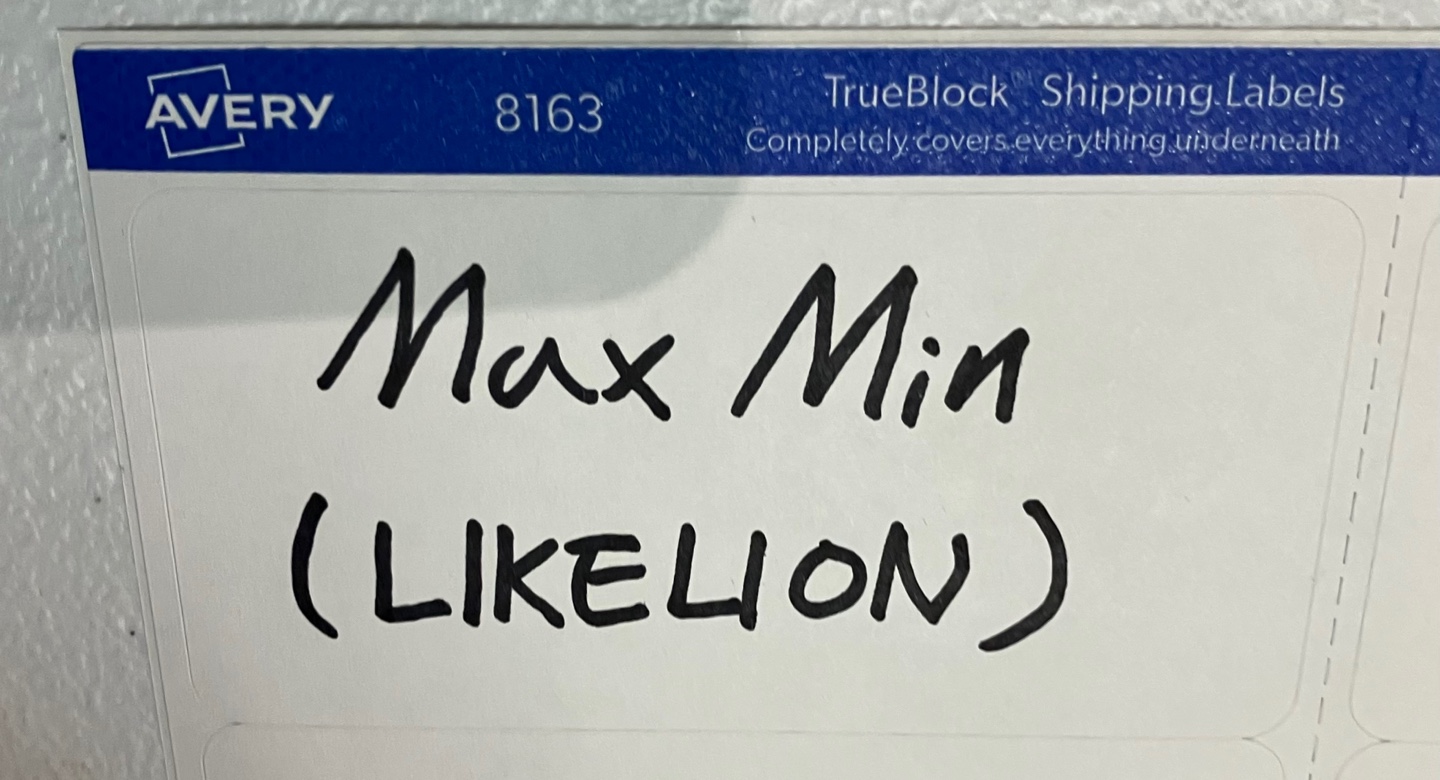 AVERY 8163 TrueBlock™ Shipping Labels
Completely covers everything underneath
Max Min
(LIKELION)